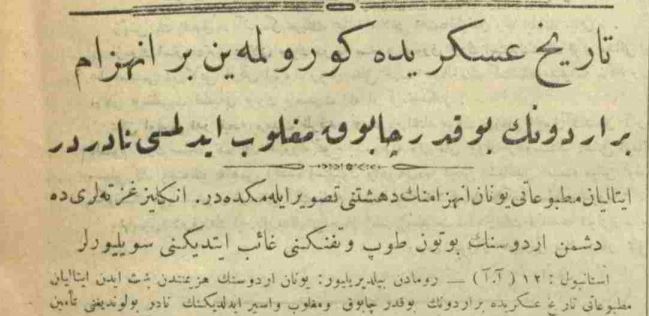 تاریخ عسكریده كورولمه‌ین بر انهزام
بر اردونك بوقدر چابوق مغلوب ایدلمسی نادردر
ایتالیان مطبوعاتی یونان انهزامنك دهشتنی تصویر ایله‌مكده‌در. انكلیز غزته‌لری ده
دشمن اردوسنك بوتون طوپ و تفنكنی غائب ایتدیكنی سویلیورلر
استانبول: ۱۲ (آ.آ) — رومادن بیلدیریلیور: یونان اردوسنك هزیمتندن بحث ایدن ایتالیان
مطبوعاتی تاریخ عسكریده بر اردونك بوقدر چابوق ومغلوب واسیر ایدلدیكنك نادر بولوندیغنی تأمین